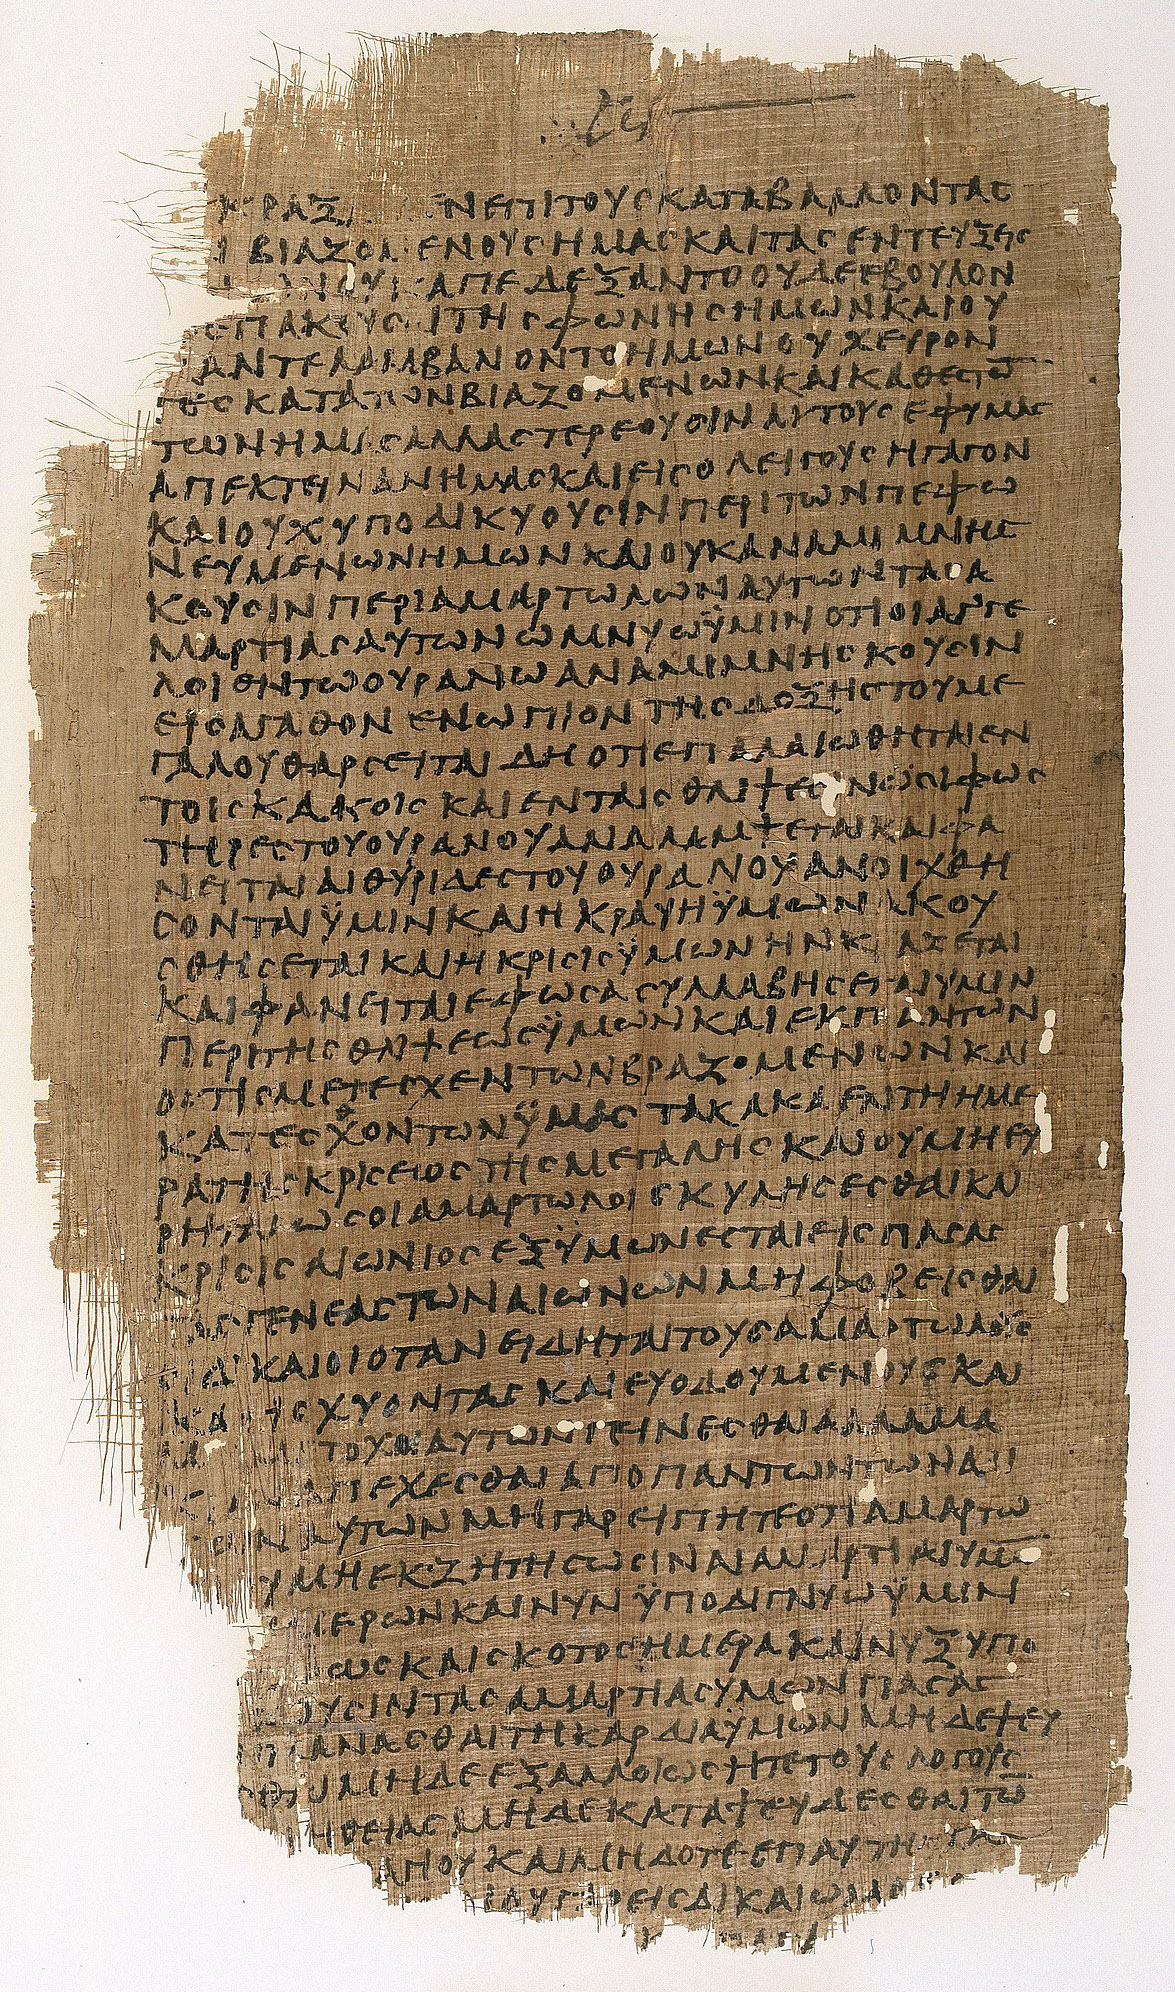 ΕΝΕΠΙΤΟΥΣΚΑΤΑΒΑΛΛΟΝΤΑΣ
ΒΙΑΖΟΜΕΝΟΥΣΗΜΑΣΚΑΙΤΑΣΕΝΤΕΥΞΕΙΣ
ΑΠΕΔΕΞΑΝΤΟΟΥΔΕΕΒΟΥΛΟΝ
ΕΠΑΚΟΥΣΑΙΤΗΣΦΩΝΗΣΗΜΩΝΚΑΙΟΥ
ΑΝΤΕΛΑΜΒΑΝΟΝΤΟΗΜΩΝΟΥΧΕΥΡΟΝ
ΤΕΣΚΑΤΑΤΩΝΒΙΑΖΟΜΕΝΩΝΚΑΙΚΑΘΕΣΤΟ̅
ΤΩΝΗΜΑΣΑΛΛΑΣΤΕΡΕΟΥΣΙΝΑΥΤΟΥΣΕΦΥΜΑΣ
ΑΠΕΚΤΕΙΝΑΝΗΜΑΣΚΑΙΕΙΣΟΛΕΙΓΟΥΣΗΓΑΓΟΝ
ΚΑΙΟΥΧΥΠΟΔΙΚΥΟΥΣΙΝΠΕΡΙΤΩΝΠΕΦΩ
ΝΕΥΜΕΝΩΝΗΜΩΝΚΑΙΟΥΚΑΝΑΜΙΜΝΗΣ
ΚΟΥΣΙΝΠΕΡΙΑΜΑΡΤΩΛΩΝΑΥΤΩΝΤΑΣΑ
ΜΑΡΤΙΑΣΑΥΤΩΝΩΜΝΥΩΫΜΙΝΟΤΙΟΙΑΓΓΕ
ΛΟΙΕΝΤΩΟΥΡΑΝΩΑΝΑΜΙΜΝΗΣΚΟΥΣΙΝ
ΕΙΣΑΓΑΘΟΝΕΝΩΠΙΟΝΤΗΣΔΟΞΗΣΤΟΥΜΕ
ΓΑΛΟΥΘΑΡΣΕΙΤΑΙΔΗΟΤΙΕΠΑΛΑΙΩΘΗΤΑΙΕΝ
ΤΟΙΣΚΑΚΟΙΣΚΑΙΕΝΤΑΙΣΘΛΙΨΕΣΙΝΩΣΙΦΩΣ
ΤΗΡΕΣΤΟΥΟΥΡΑΝΟΥΑΝΑΛΑΜΨΕΤΑΙΚΑΙΦΑ
ΝΕΙΤΑΙΑΙΘΥΡΙΔΕΣΤΟΥΟΥΡΑΝΟΥΑΝΟΙΧΘΗ
ΣΟΝΤΑΙΫΜΙΝΚΑΙΗΚΡΑΥΗΫΜΩΝΑΚΟΥ
ΣΘΗΣΕΤΑΙΚΑΙΗΚΡΙΣΙΣΫΜΩΝΗΝΚΡΑΖΕΤΑΙ
ΚΑΙΦΑΝΕΙΤΑΙΕΦΩΣΑΣΥΛΛΑΒΗΣΕΤΑΙΥΜΙΝ
ΠΕΡΙΤΗΣΘΛΙΨΕΩΣΫΜΩΝΚΑΙΕΚΠΑΝΤΩΝ
ΟΣΤΙΣΜΕΤΕΣΧΕΝΤΩΝΒΡΑΖΟΜΕΝΩΝΚΑΙ
ΚΑΤΕΣΧΟΝΤΩΝΫΜΑΣΤΑΚΑΚΑΕΝΤΗΗΜΕ
ΡΑΤΗΣΚΡΙΣΕΩΣΤΗΣΜΕΓΑΛΗΣΚΑΙΟΥΜΗΕΥ
ΡΗΤΑΙΩΣΟΙΑΜΑΡΤΩΛΟΙΣΚΥΛΗΣΕΣΘΑΙΚΑΙ
ΚΡΙΣΙΣΑΙΩΝΙΟΣΕΞΫΜΩΝΕΣΤΑΙΕΙΣΠΑΣΑΣ
ΤΑΣΓΕΝΕΑΣΤΩΝΑΙΩΝΩΝΜΗΦΟΒΕΙΣΘΑΙ
ΟΙΔΙΚΑΙΟΙΟΤΑΝΕΙΔΗΤΑΙΤΟΥΣΑΜΑΡΤΩΛΟΥΣ
ΚΑΤΙΣΧΥΟΝΤΑΣΚΑΙΕΥΟΔΟΥΜΕΝΟΥΣΚΑΙ
ΤΟΧΟΙΑΥΤΩΝΓΕΙΝΕΣΘΑΙΑΛΛΑΜΑ
ΑΠΕΧΕΣΘΑΙΑΠΟΠΑΝΤΩΝΤΩΝΑΔΙ
ΑΥΤΩΝΜΗΓΑΡΕΙΠΗΤΕΟΤΙΑΜΑΡΤΩ
ΥΜΗΕΚΖΗΤΗΣΩΣΙΝΑΙΑΜΑΡΤΙΑΙΥΜΩ̅
ΜΕΡΩΝΚΑΙΝΥΝΫΠΟΔΙΓΝΥΩΫΜΙΝ
ΩΣΚΑΙΣΚΟΤΟΣΗΜΕΡΑΚΑΙΝΥΞΥΠΟ
ΟΥΣΙΝΤΑΣΑΜΑΡΤΙΑΣΥΜΩΝΠΑΣΑΣ
ΑΝΑΣΘΑΙΤΗΚΑΡΔΙΑΫΜΩΝΜΗΔΕΨΕΥ
ΜΗΔΕΕΞΑΛΛΟΙΩΣΗΤΕΤΟΥΣΛΟΓΟΥΣ
ΗΘΕΙΑΣΜΗΔΕΚΑΤΑΨΕΥΔΕΣΘΑΙΤΩ̅
ΑΓΙΟΥΚΑΙΜΗΔΟΤΕΕΠΑΥΤΗ
ΔΙΚΑΙΩΜΑ